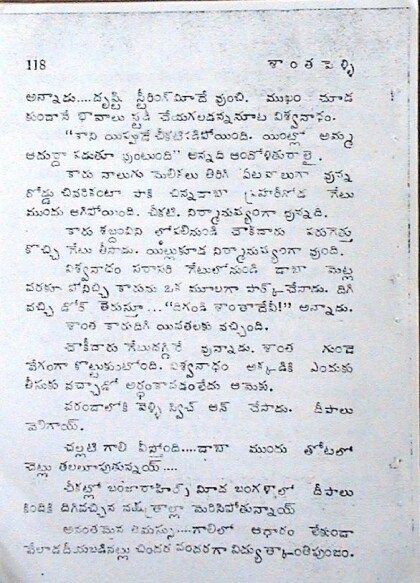 118 శాంత పెళ్ళి
అన్నాడు....దృష్టి స్టీరింగ్‌మీదే వుంచి. ముఖం చూడ
కుండానే భావాలు స్టడీ చేయగలడన్నమాట విశ్వనాధం.
"కాని యిప్పటికే చీకటిపడిపోయింది. యింట్లో అమ్మ
ఆదుర్దా పడుతూ వుంటుంది" అన్నది ఆందోళితురాలై.
కారు నాలుగు మెలికలు తిరిగి ఏటవాలుగా వున్న
రోడ్డు చివరికంటా పాకి చిన్నడాబా ప్రహరీగోడ గేటు
ముందు ఆగిపోయింది. చీకటి. నిర్మానుష్యంగా వున్నది.
కారు శబ్దంవిని లోపలినుండి చౌకీదారు పరుగెత్తు
కొచ్చి గేటు తీసాడు. యిల్లుకూడ నిర్మానుష్యంగా వుంది.
విశ్వనాధం సరాసరి గేటులోనుండి డాబా మెట్ల
వరకూ పోనిచ్చి కారును ఒక మూలగా పార్క్‌చేసాడు. దిగి
వచ్చి డోర్ తెరుస్తూ..."దిగండి శాంతాదేవీ!" అన్నాడు.
శాంత కారుదిగి యివతలకు వచ్చింది.
చౌకీదారు గేటుదగ్గిరే వున్నాడు. శాంత గుండె
వేగంగా కొట్టుకుంటోంది. విశ్వనాధం అక్కడికి ఎందుకు
తీసుకు వచ్చాడో అర్ధంకావడంలేదు ఆమెకు.
వరండాలోకి వెళ్ళి స్విచ్ ఆన్ చేసాడు. దీపాలు
వెలిగాయ్.
చల్లటి గాలి వీస్తోంది....డాబా ముందు తోటలో
చెట్లు తలలూపుతున్నయ్....
చీకట్లో బంజారాహిల్స్ మీద బంగళాలో దీపాలు
కిందికి దిగివచ్చిన నక్షత్రాల్లా మెరిసిపోతున్నాయ్
అనంతమైన తమస్సు....గాలిలో ఆధారం లేకుండా
వేలాడదీయబడినట్లు చిందర వందరగా విద్యుత్కాంతిపుంజం.